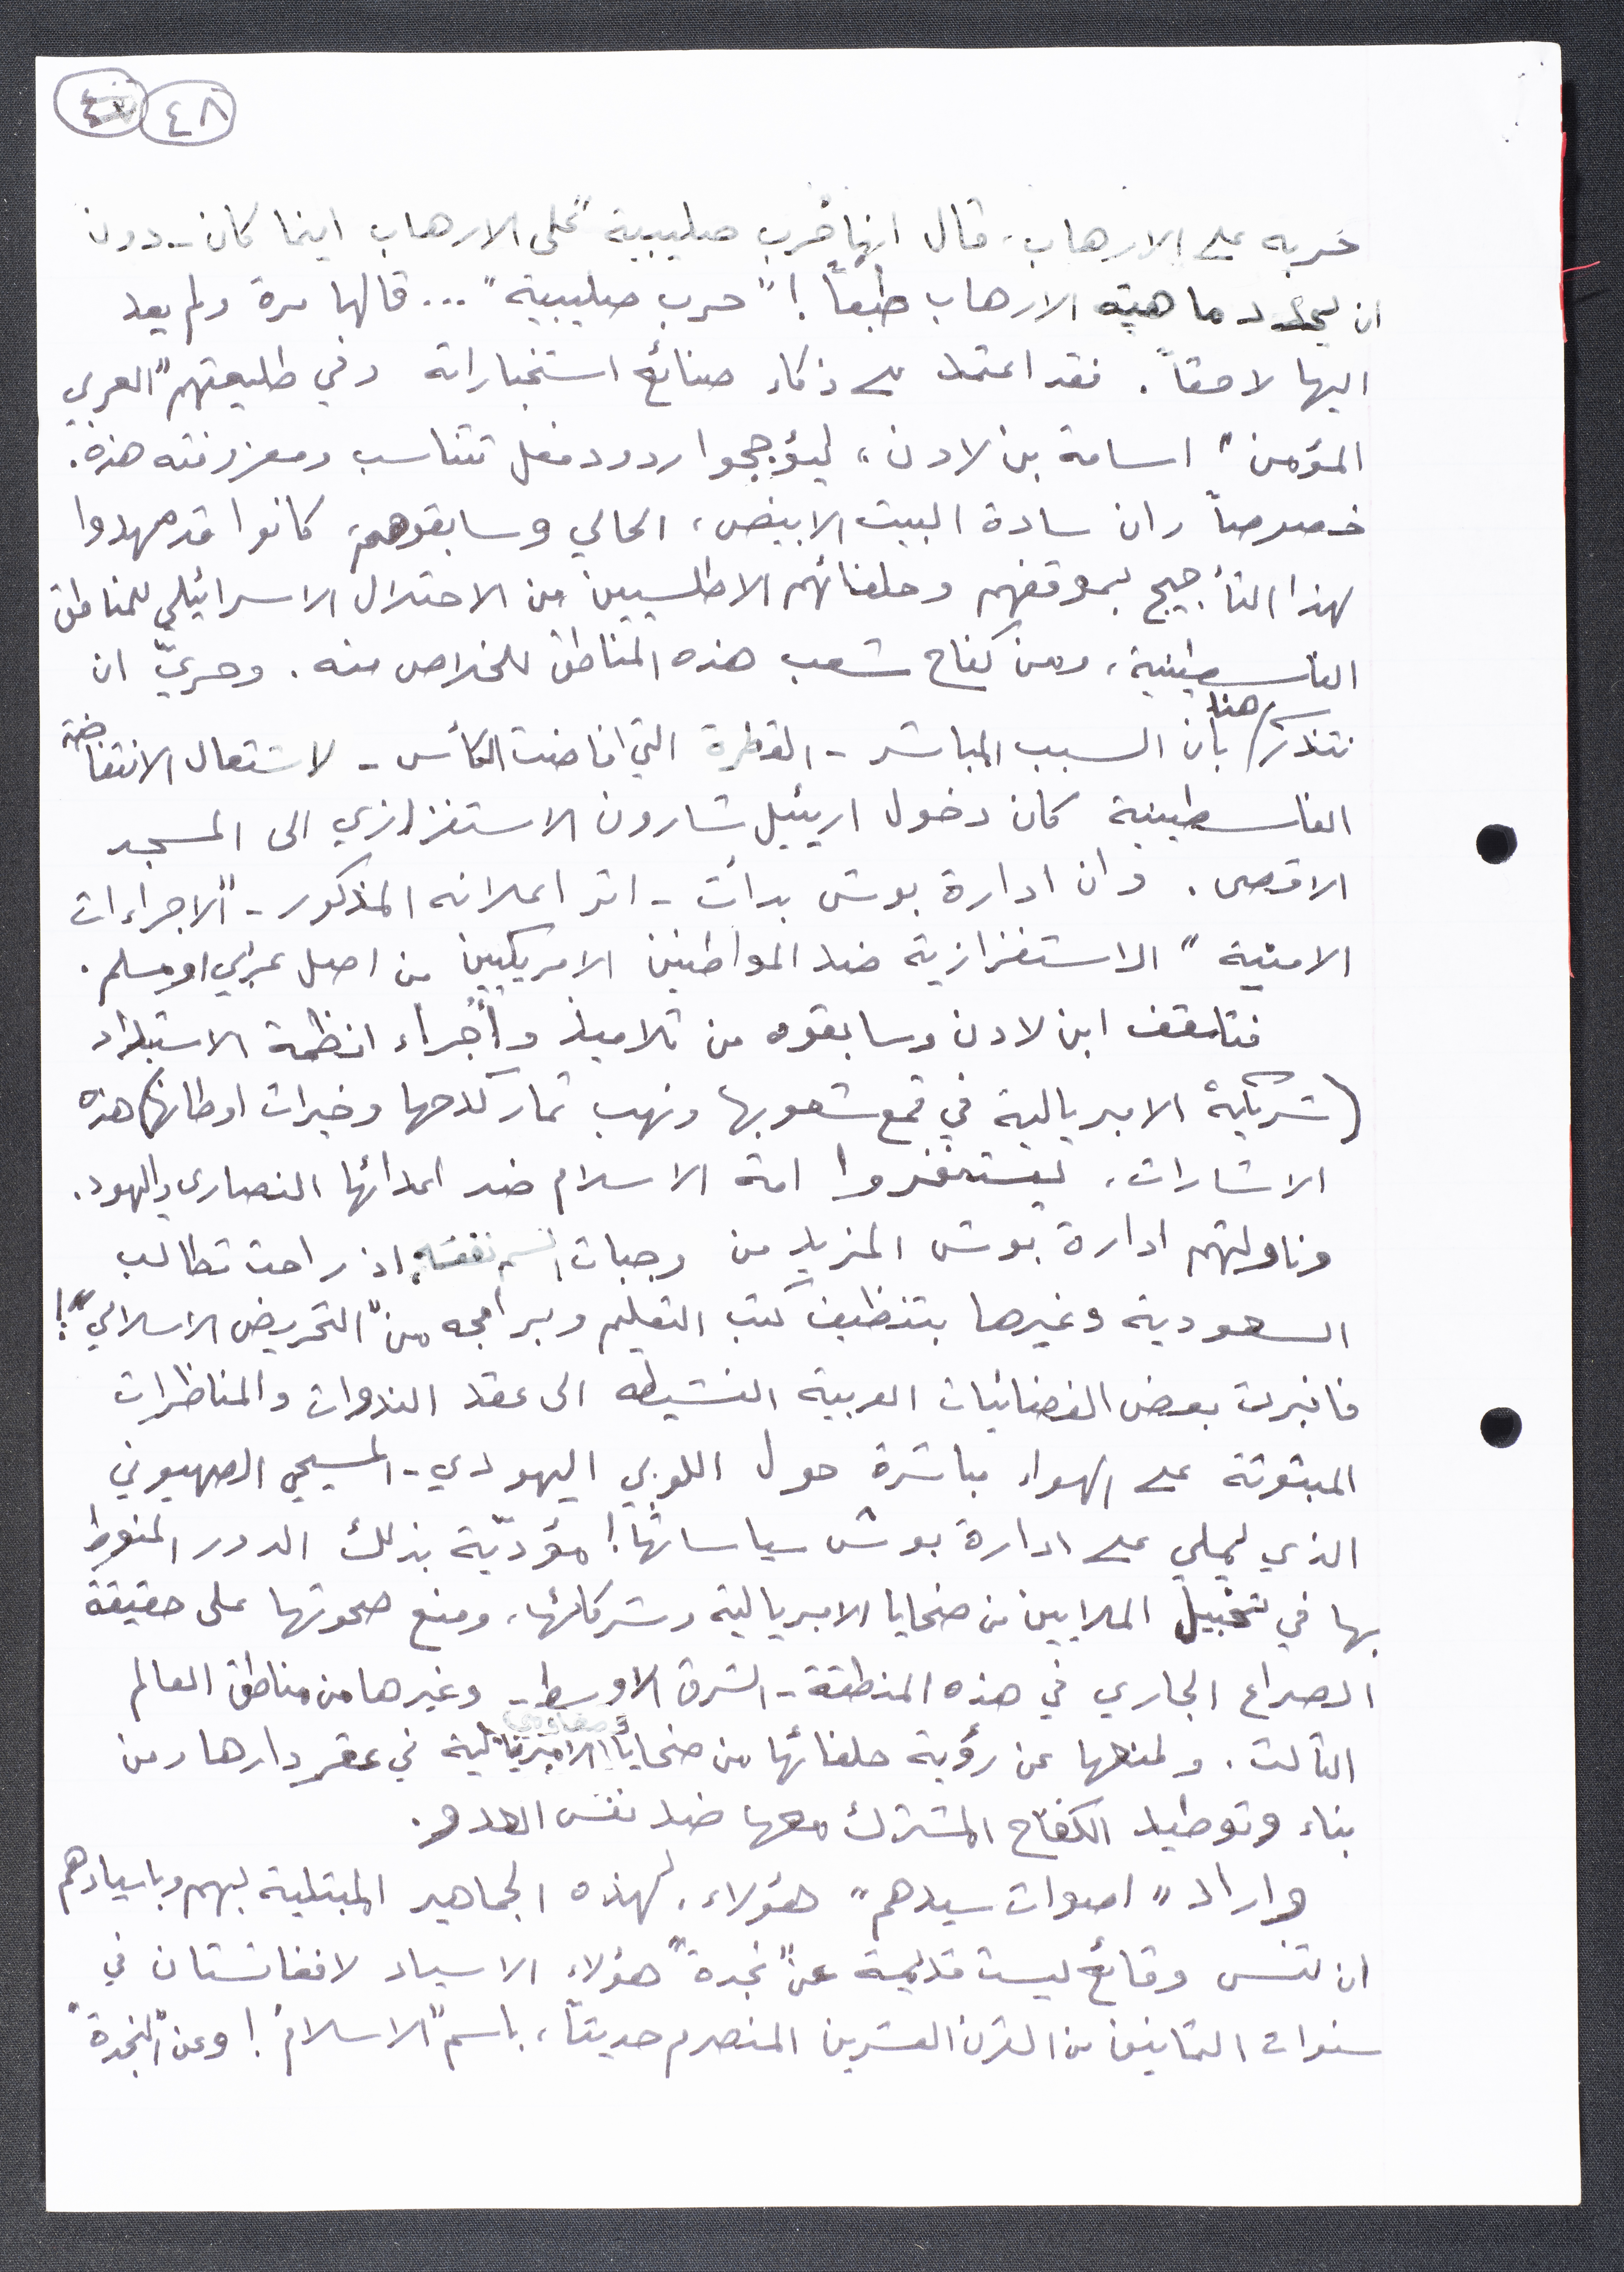 ٤٨
حربه على الارهاب، قال انها "حرب صليبية" على الارهاب اينما كان - دون
ان يحدد ماهية الارهاب طبعاً! "حرب صليبية"... قالها مرة ولم يعد
اليها لاحقاً. فقد اعتمد على ذكاء صنائع استخباراته وفي طليعتهم "العربي
المؤمن" اسامة بن لادن، ليؤججوا ردود فعل تتناسب ومعزوفته هذه.
خصوصاً وان سادة البيت الابيض، الحالي وسابقوه، كانوا قد مهدوا
لهذا التأجيج بموقفهم وحلفائهم الاطلسيين من الاحتلال الاسرائيلي للمناطق
الفلسطينية، ومن كفاح شعب هذه المناطق للخلاص منه. وحريّ ان
نتذكر هنا بأن السبب المباشر - القطرة التي افاضت الكأس - لاشتعال الانتفاضة
الفلسطينية كان دخول اريئيل شارون الاستفزازي الى المسجد
الاقصى. وان ادارة بوش بدأت - اثر اعلانه المذكور - "الاجراءات
الامنية" الاستفزازية ضد المواطنين الامريكيين من اصل عربي او مسلم.
فتلقف ابن لادن وسابقوه من تلاميذ وأجراء انظمة الاستبداد
(شريكة الامبريالية في قمع شعوبها ونهب ثمار كدحها وخيرات اوطانها) هذه
الاشارات، ليستنفروا امة الاسلام ضد اعدائها النصارى واليهود.
وناولتهم ادارة بوش المزيد من وجبات السم نفسه، اذ راحت تطالب
السعودية وغيرها بتنظيف كتب التعليم وبرامجه من "التحريض الاسلامي"!
فانبرت بعض الفضائيات العربية النشيطه الى عقد الندوات والمناظرات
المبثوثة على الهواء مباشرة حول اللوبي اليهودي - المسيحي الصهيوني
الذي يملي على ادارة بوش سياساتها! مؤديّة بذلك الدور المنوط
بها في تخبيل الملايين من ضحايا الامبريالية وشركائها، ومنع صحوتها على حقيقة
الصراع الجاري في هذه المنطقة - الشرق الاوسط - وغيرها من مناطق العالم
الثالث. ولمنعها عن رؤية حلفائها من ضحايا ومقاومي الامبريالية في عقر دارها ومن
بناء وتوطيد الكفاح المشترك معها ضد نفس العدو.
واراد "اصوات سيدهم" هؤلاء، لهذه الجماهير المبتلية بهم وباسيادهم
ان تنسى وقائع ليست قديمة عن "نجدة" هؤلاء الاسياد لافغانستان في
سنوات الثمانين من القرن العشرين المنصرم حديثاً، باسم "الاسلام"! وعن "النجدة"